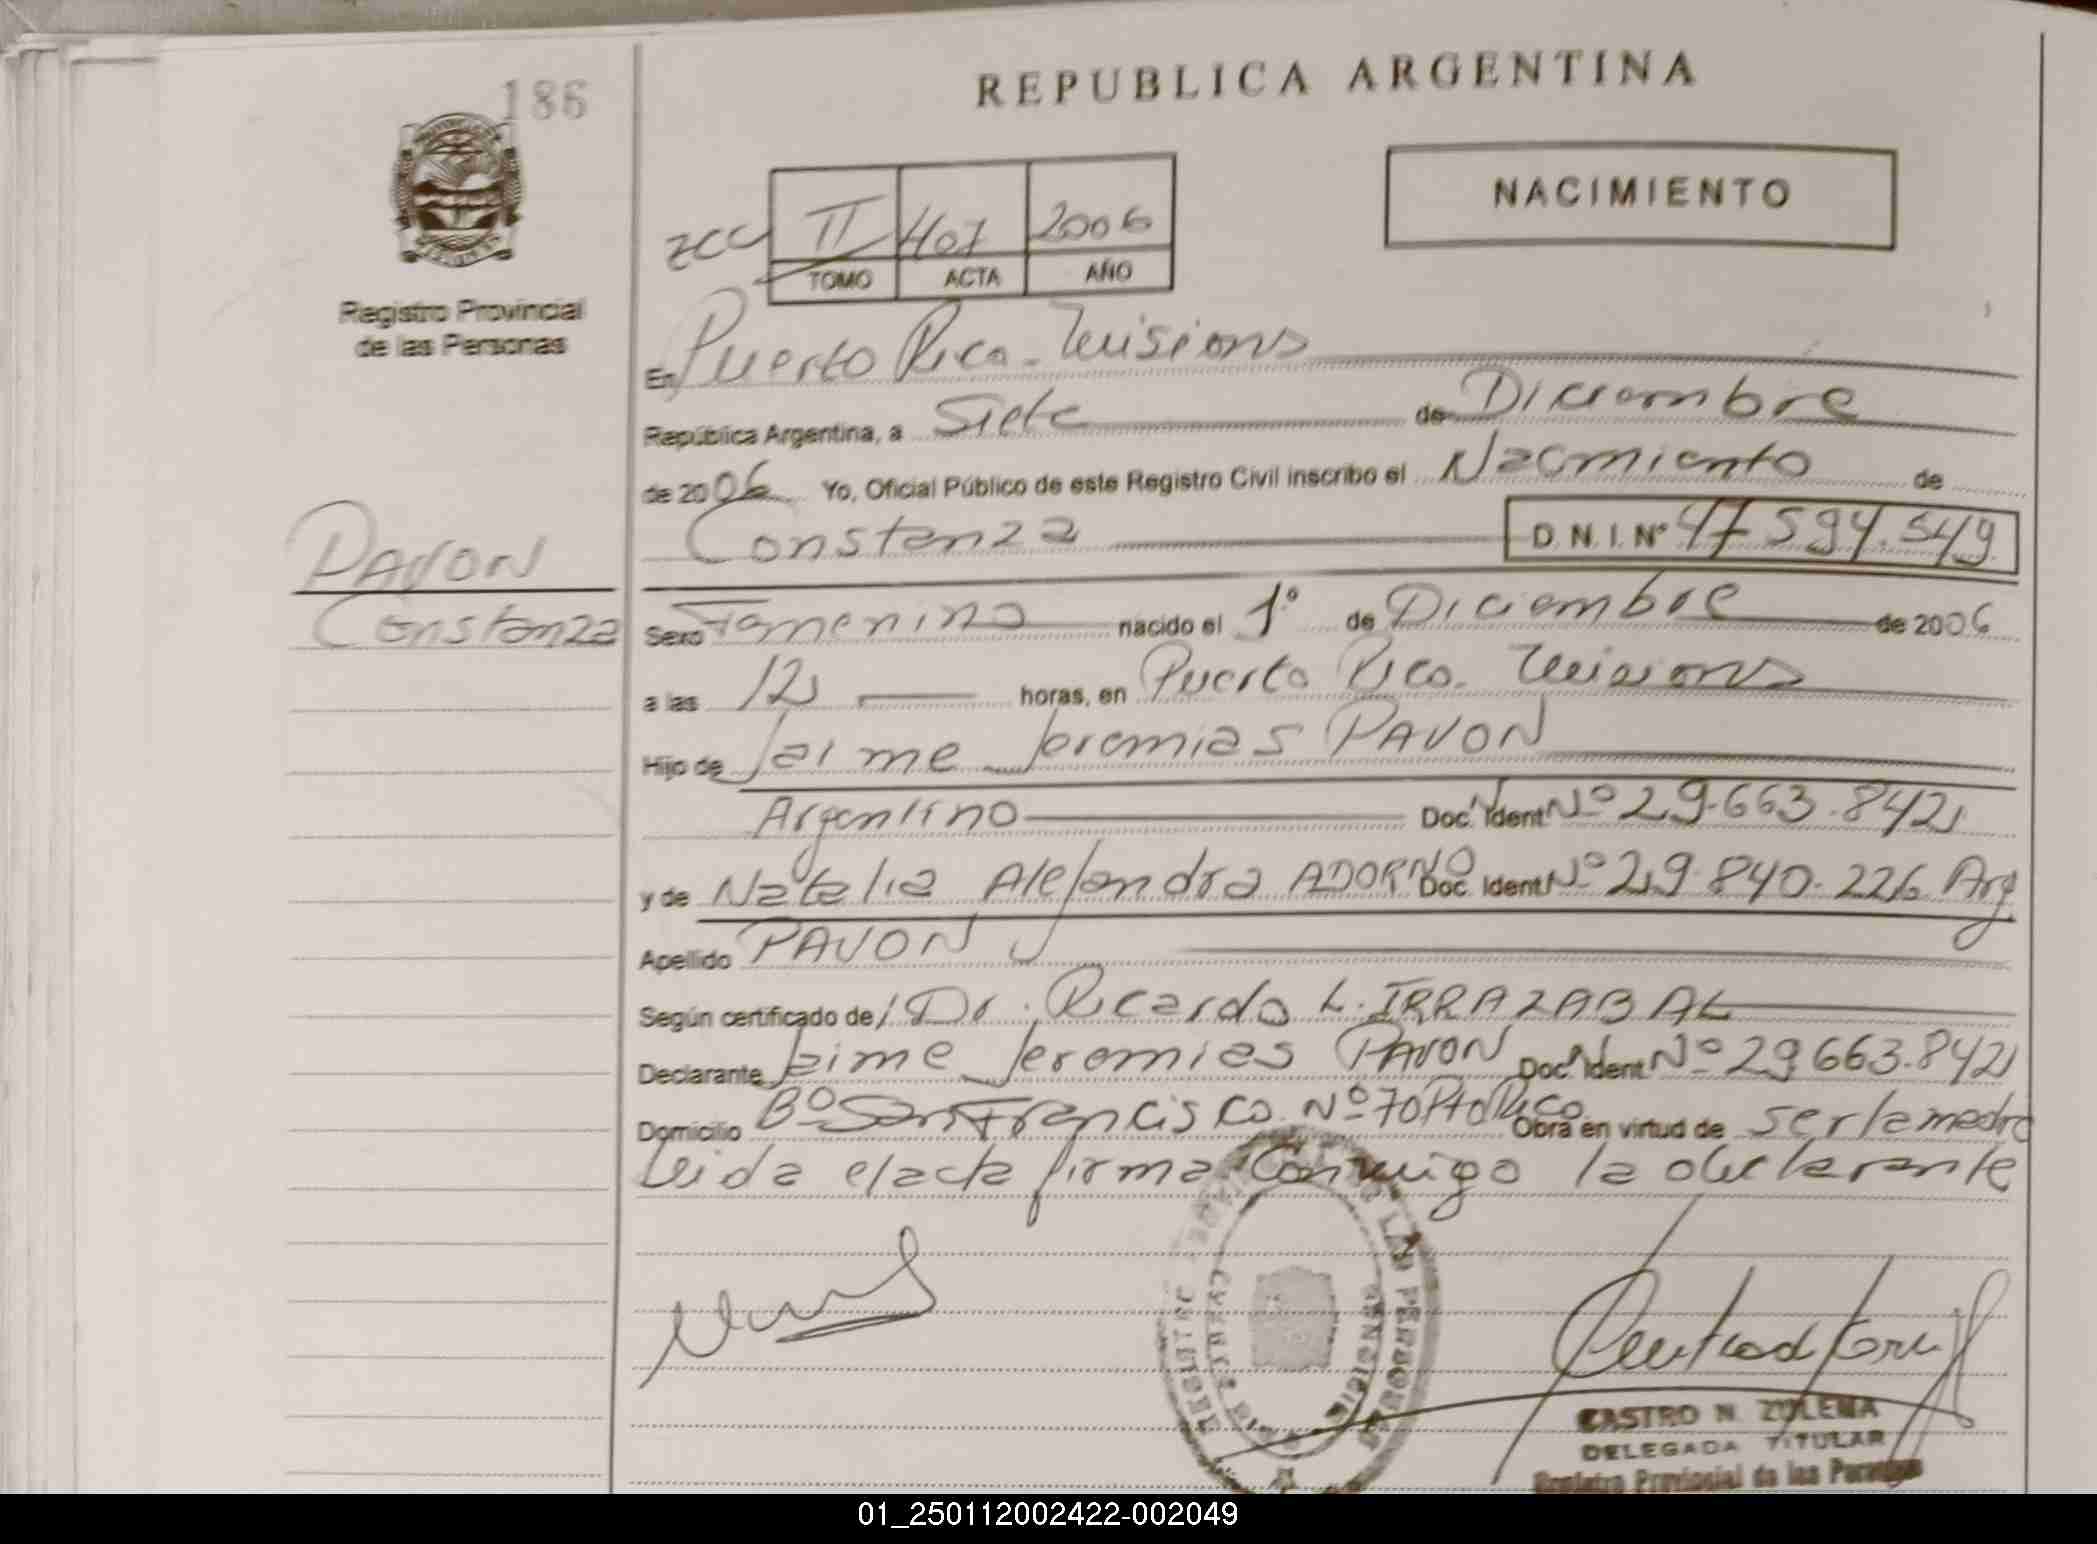 186
REPUBLICA ARGENTINA
NACIMIENTO
II 407 2006
TOMO ACTA AÑO
Registro Provincial
de las Personas
En Puerto Rico - Misiones
República Argentina, a Siete de Diciembre
de 2006 Yo, Oficial Público de este Registro Civil inscribo el Nacimiento de
Constanza D.N.I. Nº 47 594.549
PAVON
Constanza
Sexo Femenino nacido el 1º de Diciembre de 2006
a las 12 horas, en Puerto Rico - Misiones
Hijo de Jaime Jeremias PAVON
Argentino Doc. Ident Nº 29.663.842
y de Natalia Alejandra ADORNO Doc. Ident Nº 29.840.226 Arg
Apellido PAVON
Según certificado de Dr. Ricardo L. IRRAZABAL
Declarante Jaime Jeremias PAVON Doc. Ident Nº 29663.842
Domicilio Bº San Francisco Nº 70 Pto Rico Obra en virtud de ser la madre
Leida el acta firma conmigo la declarante
CASTRO N. ZULEMA
DELEGADA TITULAR
Registro Provincial de las Personas
01_250112002422-002049